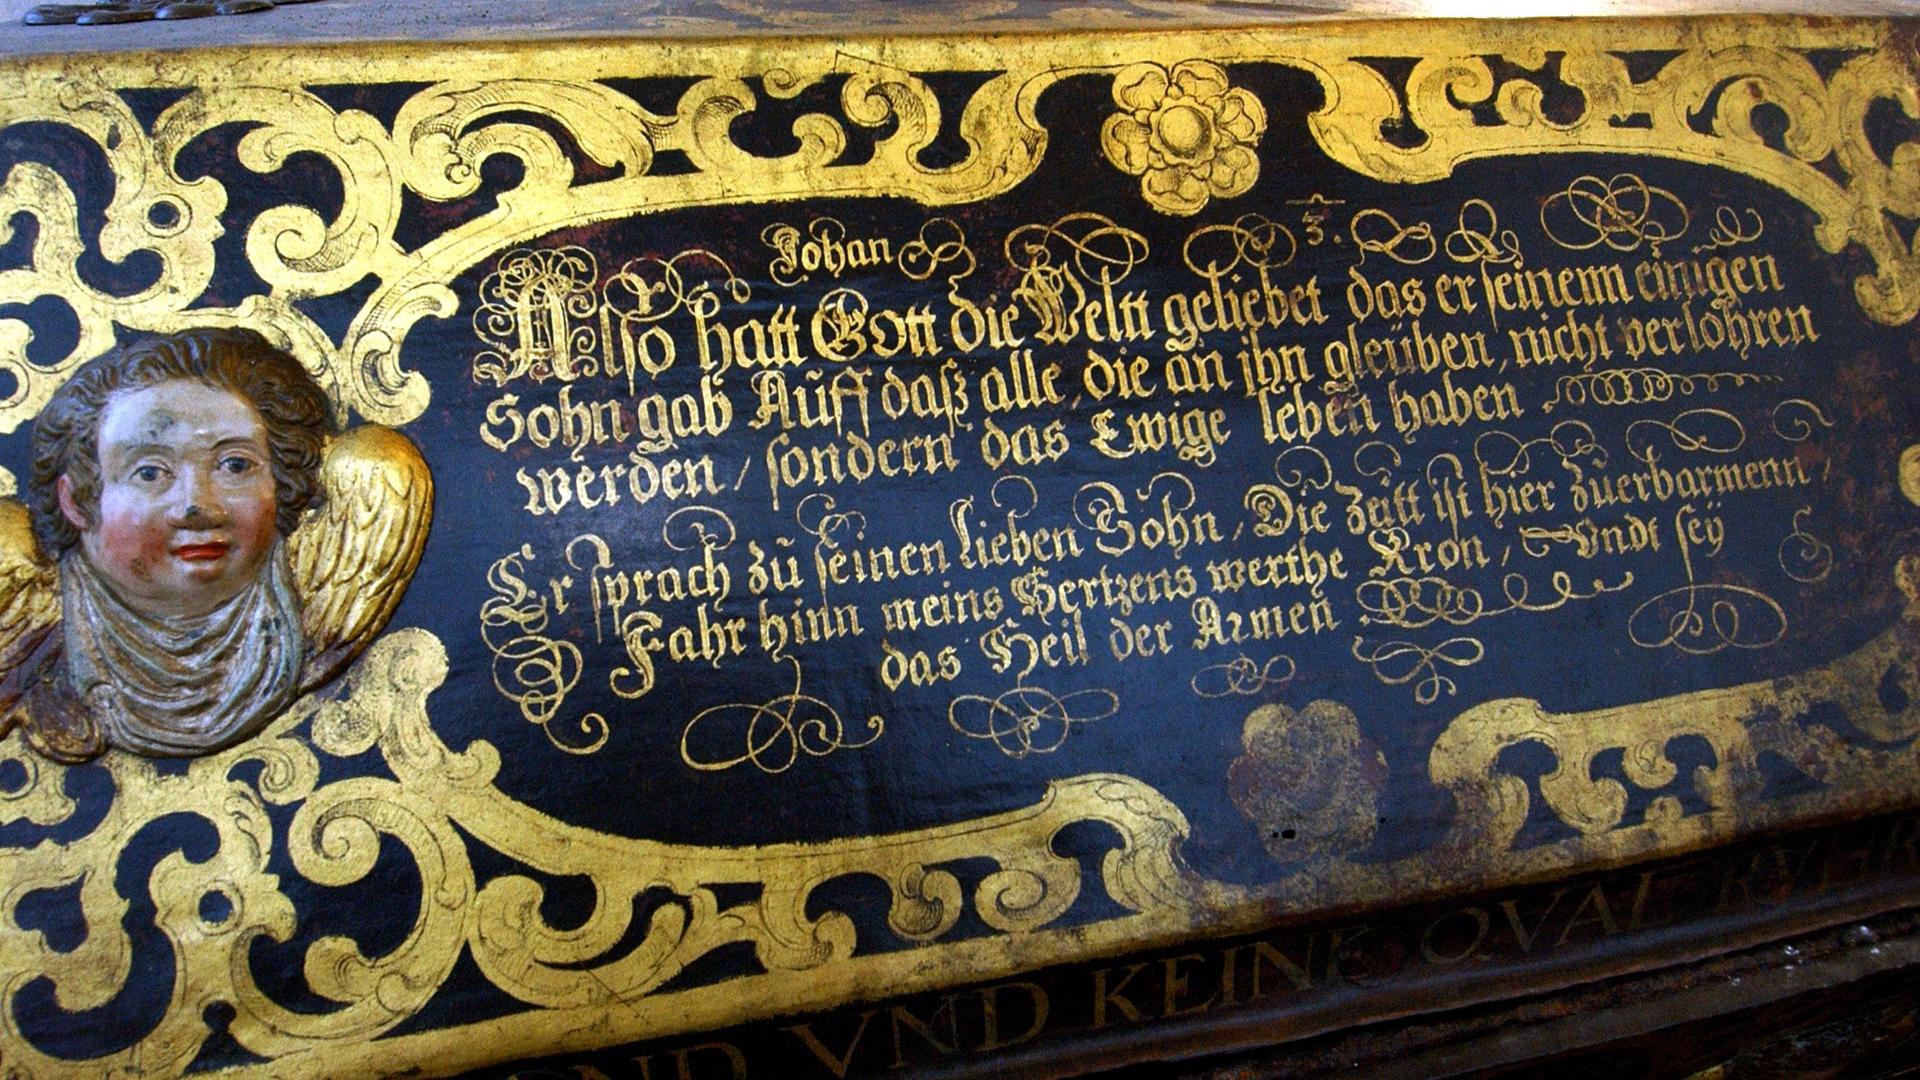 Johan 3.
Also hatt Gott die Weltt geliebet das er seinenn einigen
Sohn gab Auff daß alle, die an ihn gleüben, nicht verlohren
werden / sondern das Ewige leben haben
Er sprach zu seinen lieben Sohn / Die Zeitt ist hier zuerbarmenn /
Fahr hinn meins Hertzens werthe Kron / Vndt seÿ
das Heil der Armen
VND KEINE QVAL RVHR